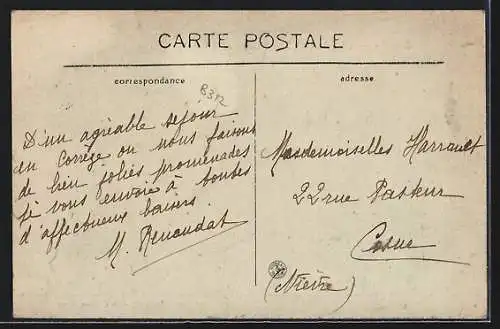 CARTE POSTALE
correspondance
8312
D'un agréable séjour
en Corrèze ou nous faisons
de bien jolies promenades
je vous envoie à toutes
d'affectueux baisers.
M. Renaudat
adresse
Mesdemoiselles Harrault
22 rue Pasteur
Cosne
(Nièvre)